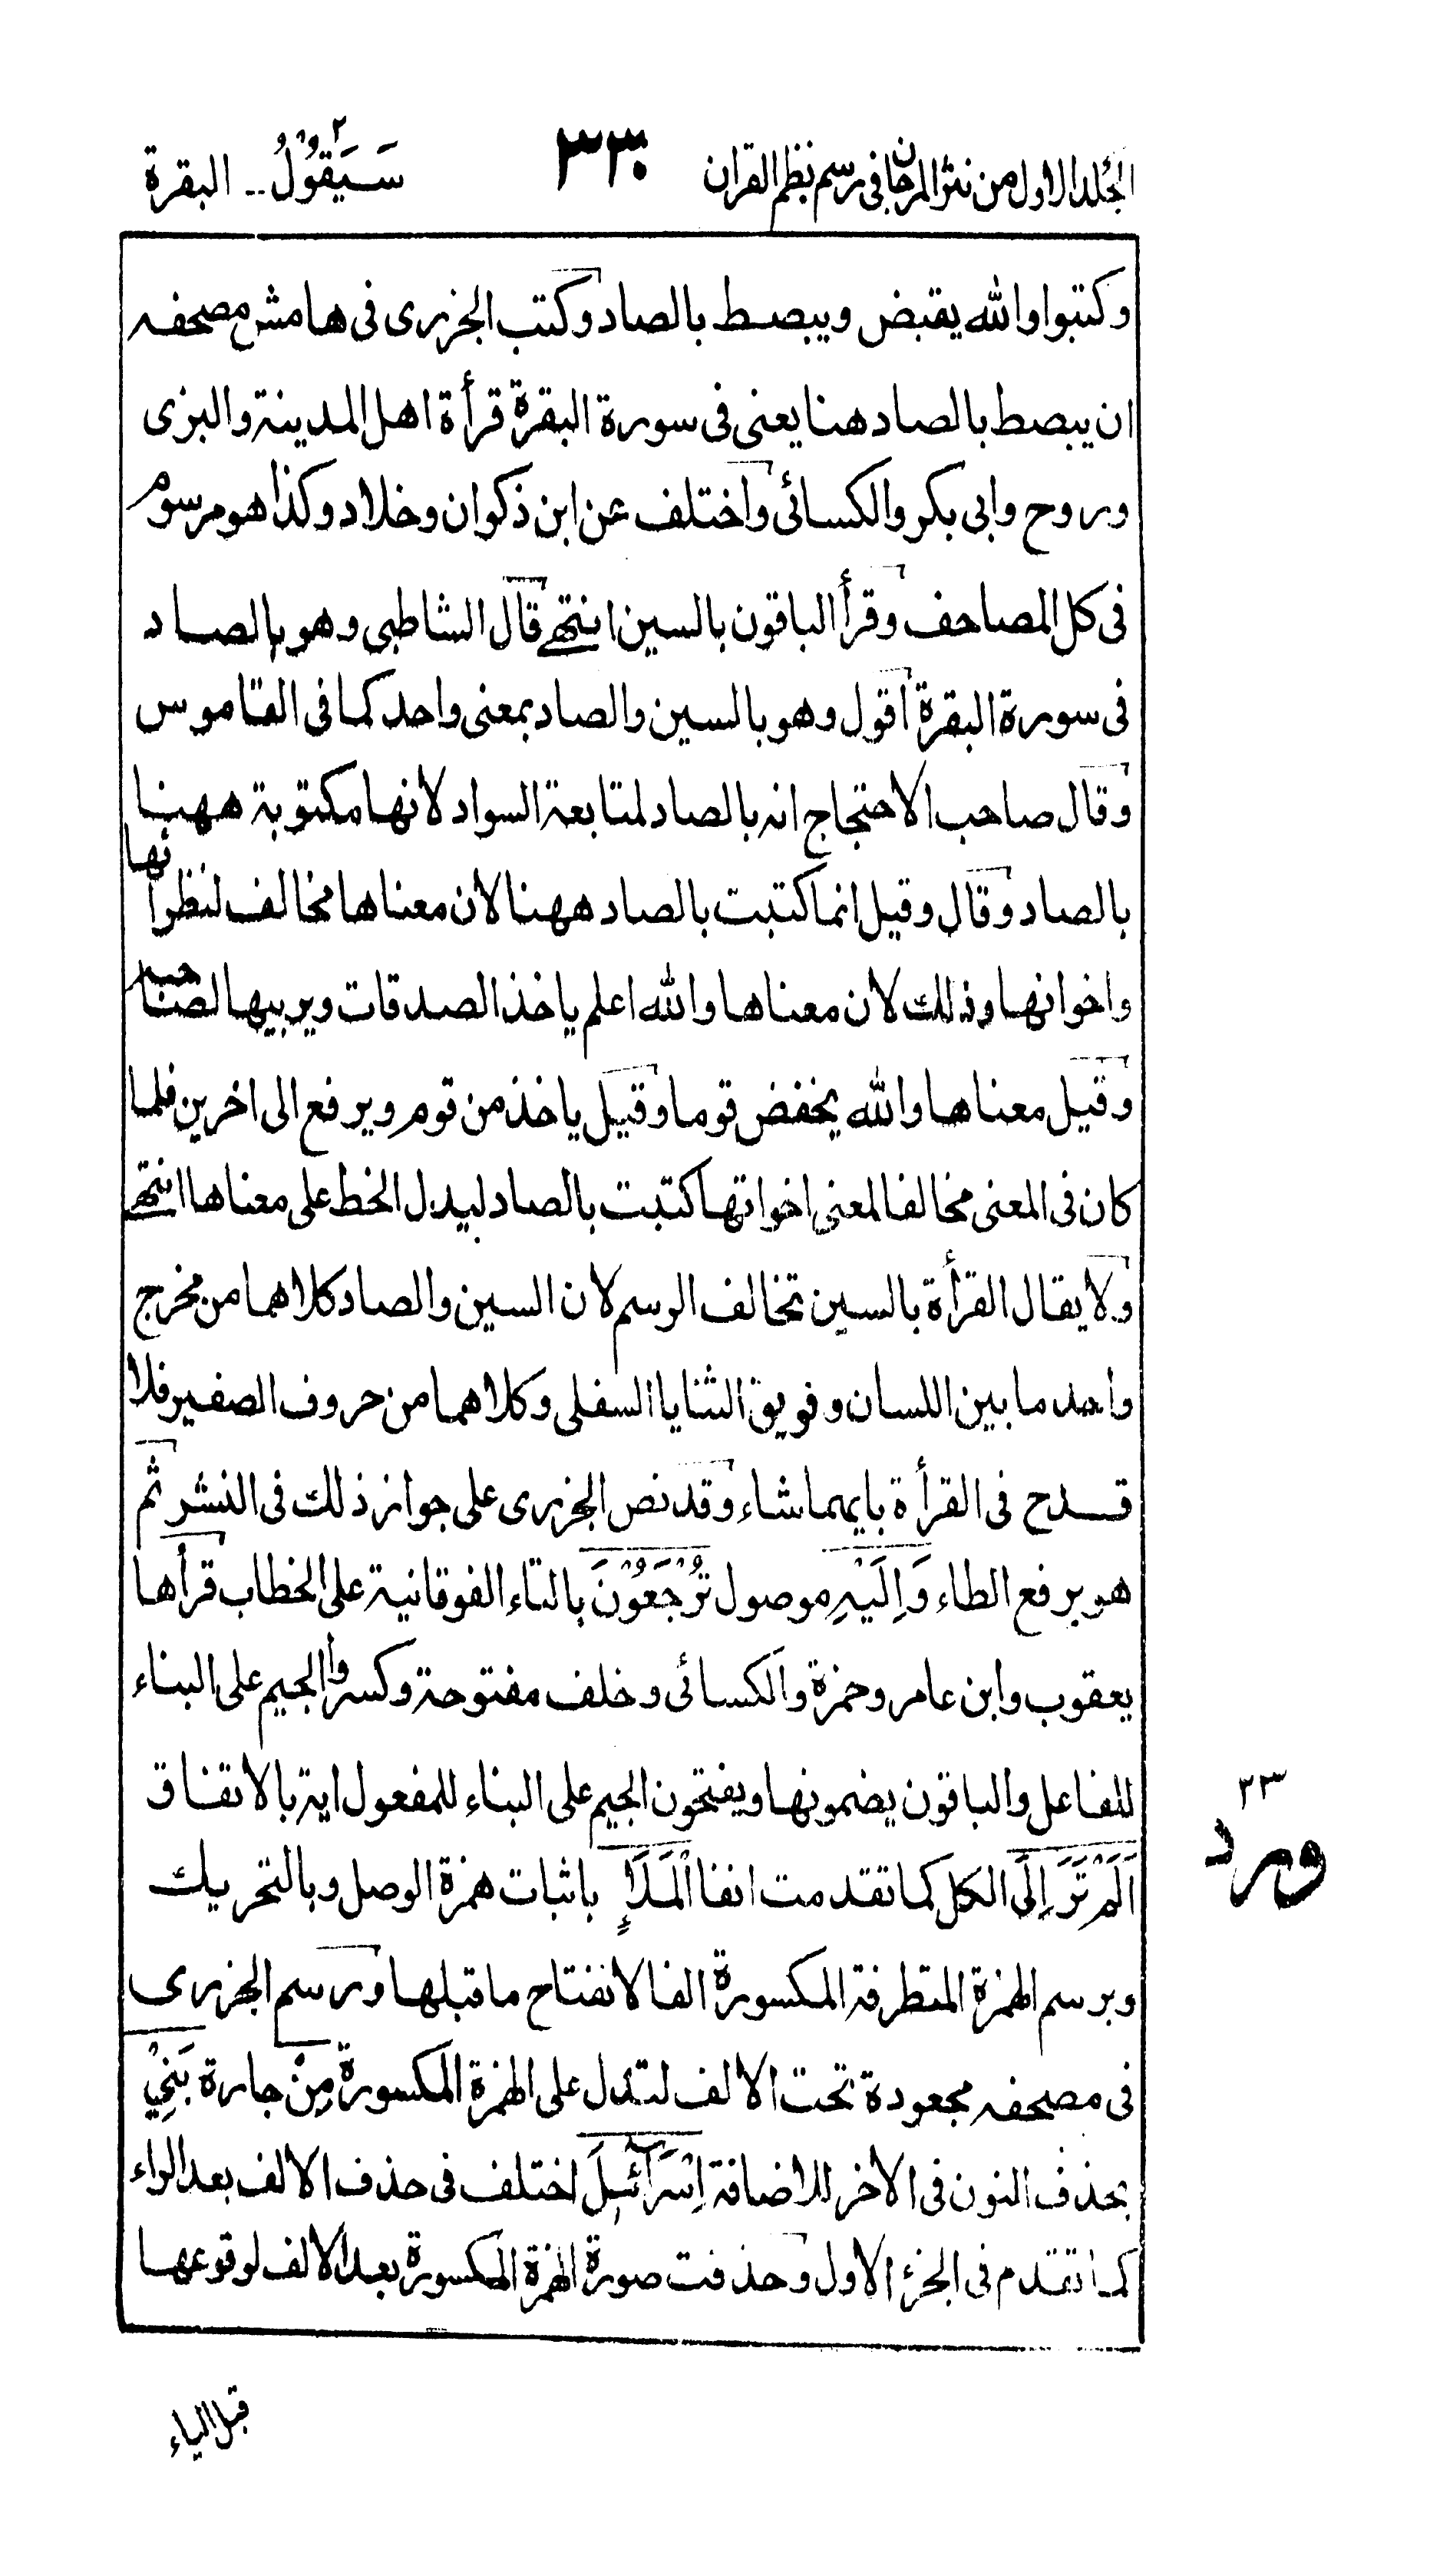 الجلد الاول من نثر المرجان فی رسم نظم القران
٣٣٠
سَيَقُوْلُ ٢ .. البقرة
وكتبوا والله يقبض ويبصط بالصاد وكتب الجزرى فى هامش مصحفه
ان يبصط بالصاد هنا يعنى فى سورة البقرة قرأة اهل المدينة والبزى
وروح وابى بكر والكسائى واختلف عن ابن ذكوان وخلاد وكذا هو مرسوم
فى كل المصاحف وقرأ الباقون بالسين انتهے قال الشاطبى وهو بالصاد
فى سورة البقرة اقول وهو بالسين والصاد بمعنى واحد كما فى القاموس
وقال صاحب الاحتجاج انه بالصاد لمتابعة السواد لانها مكتوبة ههنا
بالصاد وقال وقيل انما كتبت بالصاد ههنا لان معناها مخالف لنظرائها
واخواتها وذلك لان معناها والله اعلم ياخذ الصدقات ويربيها لصاحبها
وقيل معناها والله يخفض قوما وقيل ياخذ من قوم ويرفع الى اخرين فلما
كان فى المعنى مخالفا لمعنى اخواتها كتبت بالصاد ليدل الخط على معناها انتهے
ولا يقال القرأة بالسين تخالف الرسم لان السين والصاد كلاهما من مخرج
واحد ما بين اللسان وفويق الثنايا السفلى وكلاهما من حروف الصفير فلا
قدح فى القرأة بايهما شاء وقد نص الجزرى على جواز ذلك فى النشر ثم
هو برفع الطاء وَاِلَيْهِ موصول تُرْجَعُوْنَ بالتاء الفوقانية على الخطاب قرأها
يعقوب وابن عامر وحمزة والكسائى وخلف مفتوحة وكسروا الجيم على البناء
للفاعل والباقون يضمونها ويفتحون الجيم على البناء للمفعول اية بالاتفاق
اَلَمْ تَرَ اِلَى الكل كما تقدمت انفا الْمَلَاِ باثبات همزة الوصل وبالتحريك
وبرسم الهمزة المتطرفة المكسورة الفا لانفتاح ما قبلها ورسم الجزرى
فى مصحفه مجعودة تحت الالف لتدل على الهمزة المكسورة مِنْ جارة بَنِىْ
بحذف النون فى الاخر للاضافة اِسْرَآئِيْلَ اختلف فى حذف الالف بعد الراء
كما تقدم فى الجزء الاول وحذفت صورة الهمزة المكسورة بعد الالف لوقوعها
٣٣
قبل الياء